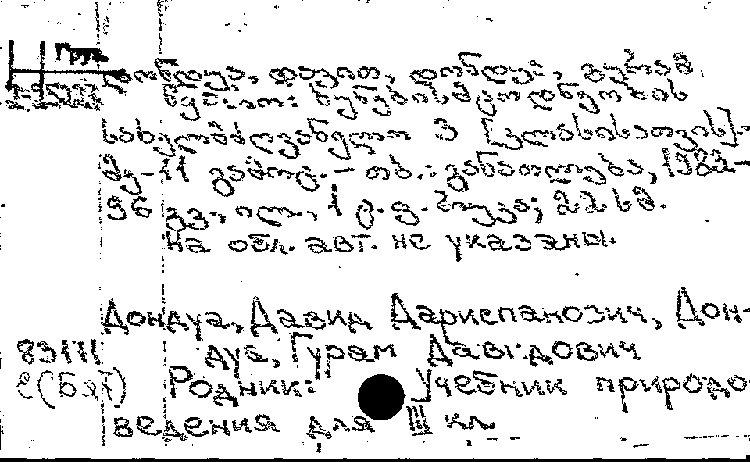 Груз.
დონდუა, დავით, დონდუა, გურამ
წყარო: ბუნებისმცოდნეობის
სახელმძღვანელო 3 [კლასისათვის].
მე-11 გამოც. - თბ.: განათლება, 1982-
96 გვ., ილ., 1 ც.ფ. რუკა; 22 სმ.
На обл. авт. не указаны.
Дондуа, Давид Дариспанович, Дон-
83171 дуа, Гурам Давидович
е(Бят) Родник: Учебник природо-
ведения для III кл.